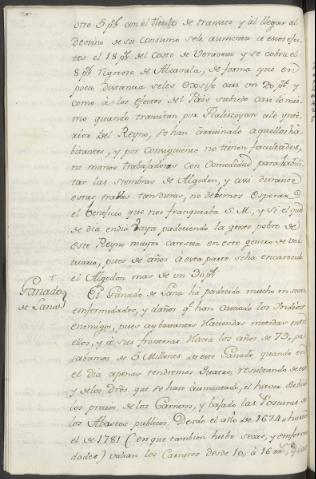 otro 5 p% con el titulo de transito y al llegar al
destino de su consumo se le aumenta a estos efec-
tos el 18 p% del Costo de Veracruz y se cobra el
8 p% rigoroso de Alcavala, de forma que en
poca distancia se les exesive con un 20 p% y
como á los Efectos del Paiz sufren con lo mis-
mo quando transitan por lo inte-
rior del Reyno, se han arruinado aquellos ha-
bitantes, y por consiguiente no tienen facultades,
ni manos trabajadoras con Comodidad para habili-
tar las siembras de Algodon, y asi durante
estas trabas tan duras, no debemos esperar
el beneficio que nos franqueaba S.M., y si el que
de dia en dia vaya padeciendo la gente pobre de
este Reyno mayor carestia en este genero de ves-
tuario, pues de años a esta parte se ha encarecido
el Algodon mas de un 20 p%
Ganado
de Lana
El Ganado de Lana ha padecido mucho en sus
enfermedades, y daños q.e han causado los Indios
enemigos, pues
ellos, y à sus fronteras Hasta los años de 73, pa-
sabamos de 5 Millones de este Ganado quando en
el dia apenas tendremos quatro, resultando de eso
y de los dros que se han aumentado, el haver subido
los precios de los Carneros, y bajado las Posturas de
los Abastos publicos. Desde el año de 1674 hasta
el de 1781 (en que tambien hubo secas, y enferme-
dades) valian los Carneros desde 10, à 16 rr.s